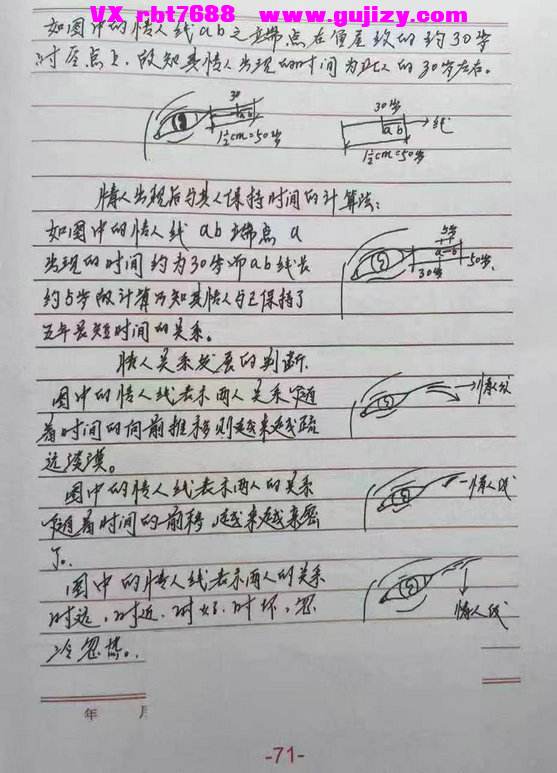 VX rbt7688 www.gujizy.com
如图中的情人线ab之a端点在值屋纹的约30岁
时区点上,故知其情人出现的时间为此人的30岁左右。
30
ab
1½cm=50岁
30岁
ab
线
1½cm=50岁
情人出现后与其人保持时间的计算法:
如图中的情人线ab端点a
出现的时间约为30岁而ab线长
约5岁故计算可知其情人与已保持了
五年最短时间的关系。
5岁
a b
50岁
30岁
情人关系发展的判断
图中的情人线表示两人关系随
着时间的向前推移则越来越疏
远淡漠。
情人线
图中的情人线表示两人的关系
随着时间的前移,越来越来密
了。
情人线
图中的情人线表示两人的关系
时远,时近,时好,时坏,忽
冷忽热。
情人线
年 月
-71-